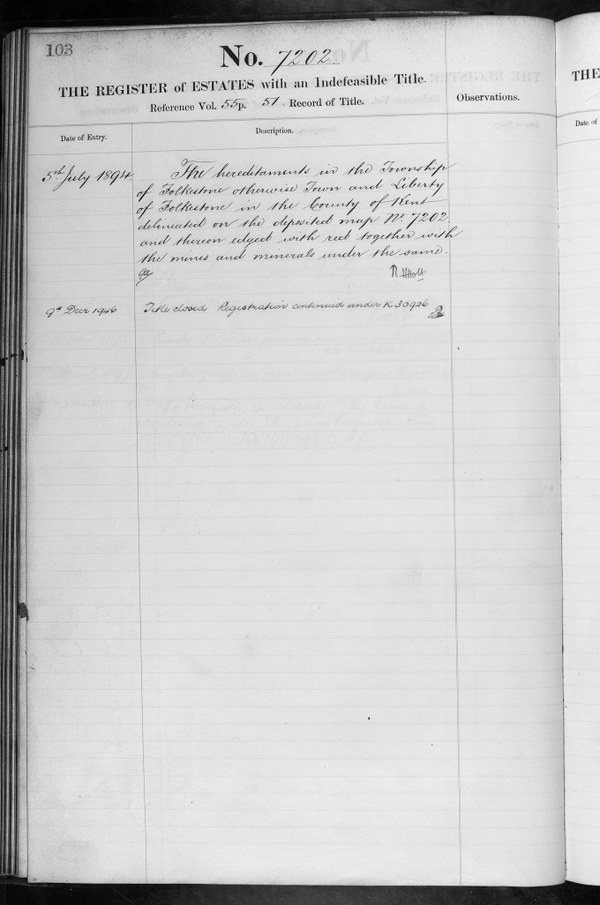 103
No. 7202
THE REGISTER of ESTATES with an Indefeasible Title.
Reference Vol. 55 p. 51 Record of Title.
Observations.
Date of Entry.
Description.
5th July 1894
The hereditaments in the Township
of Folkestone otherwise Town and Liberty
of Folkestone in the County of Kent
delineated on the deposited map No. 7202
and thereon edged with red together with
the mines and minerals under the same.
R. H. Holt
9th Decr 1946
Title closed Registration continued under K 30926
THE
Date of